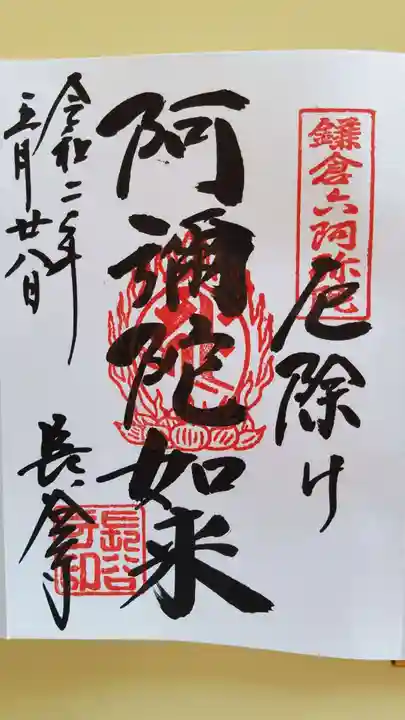 鎌倉六阿弥陀
厄除け
阿彌陀如来
令和二年
三月廿八日
長谷寺
長谷
寺印